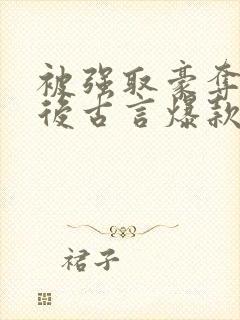 被强取豪夺
后古言爆款
裙子